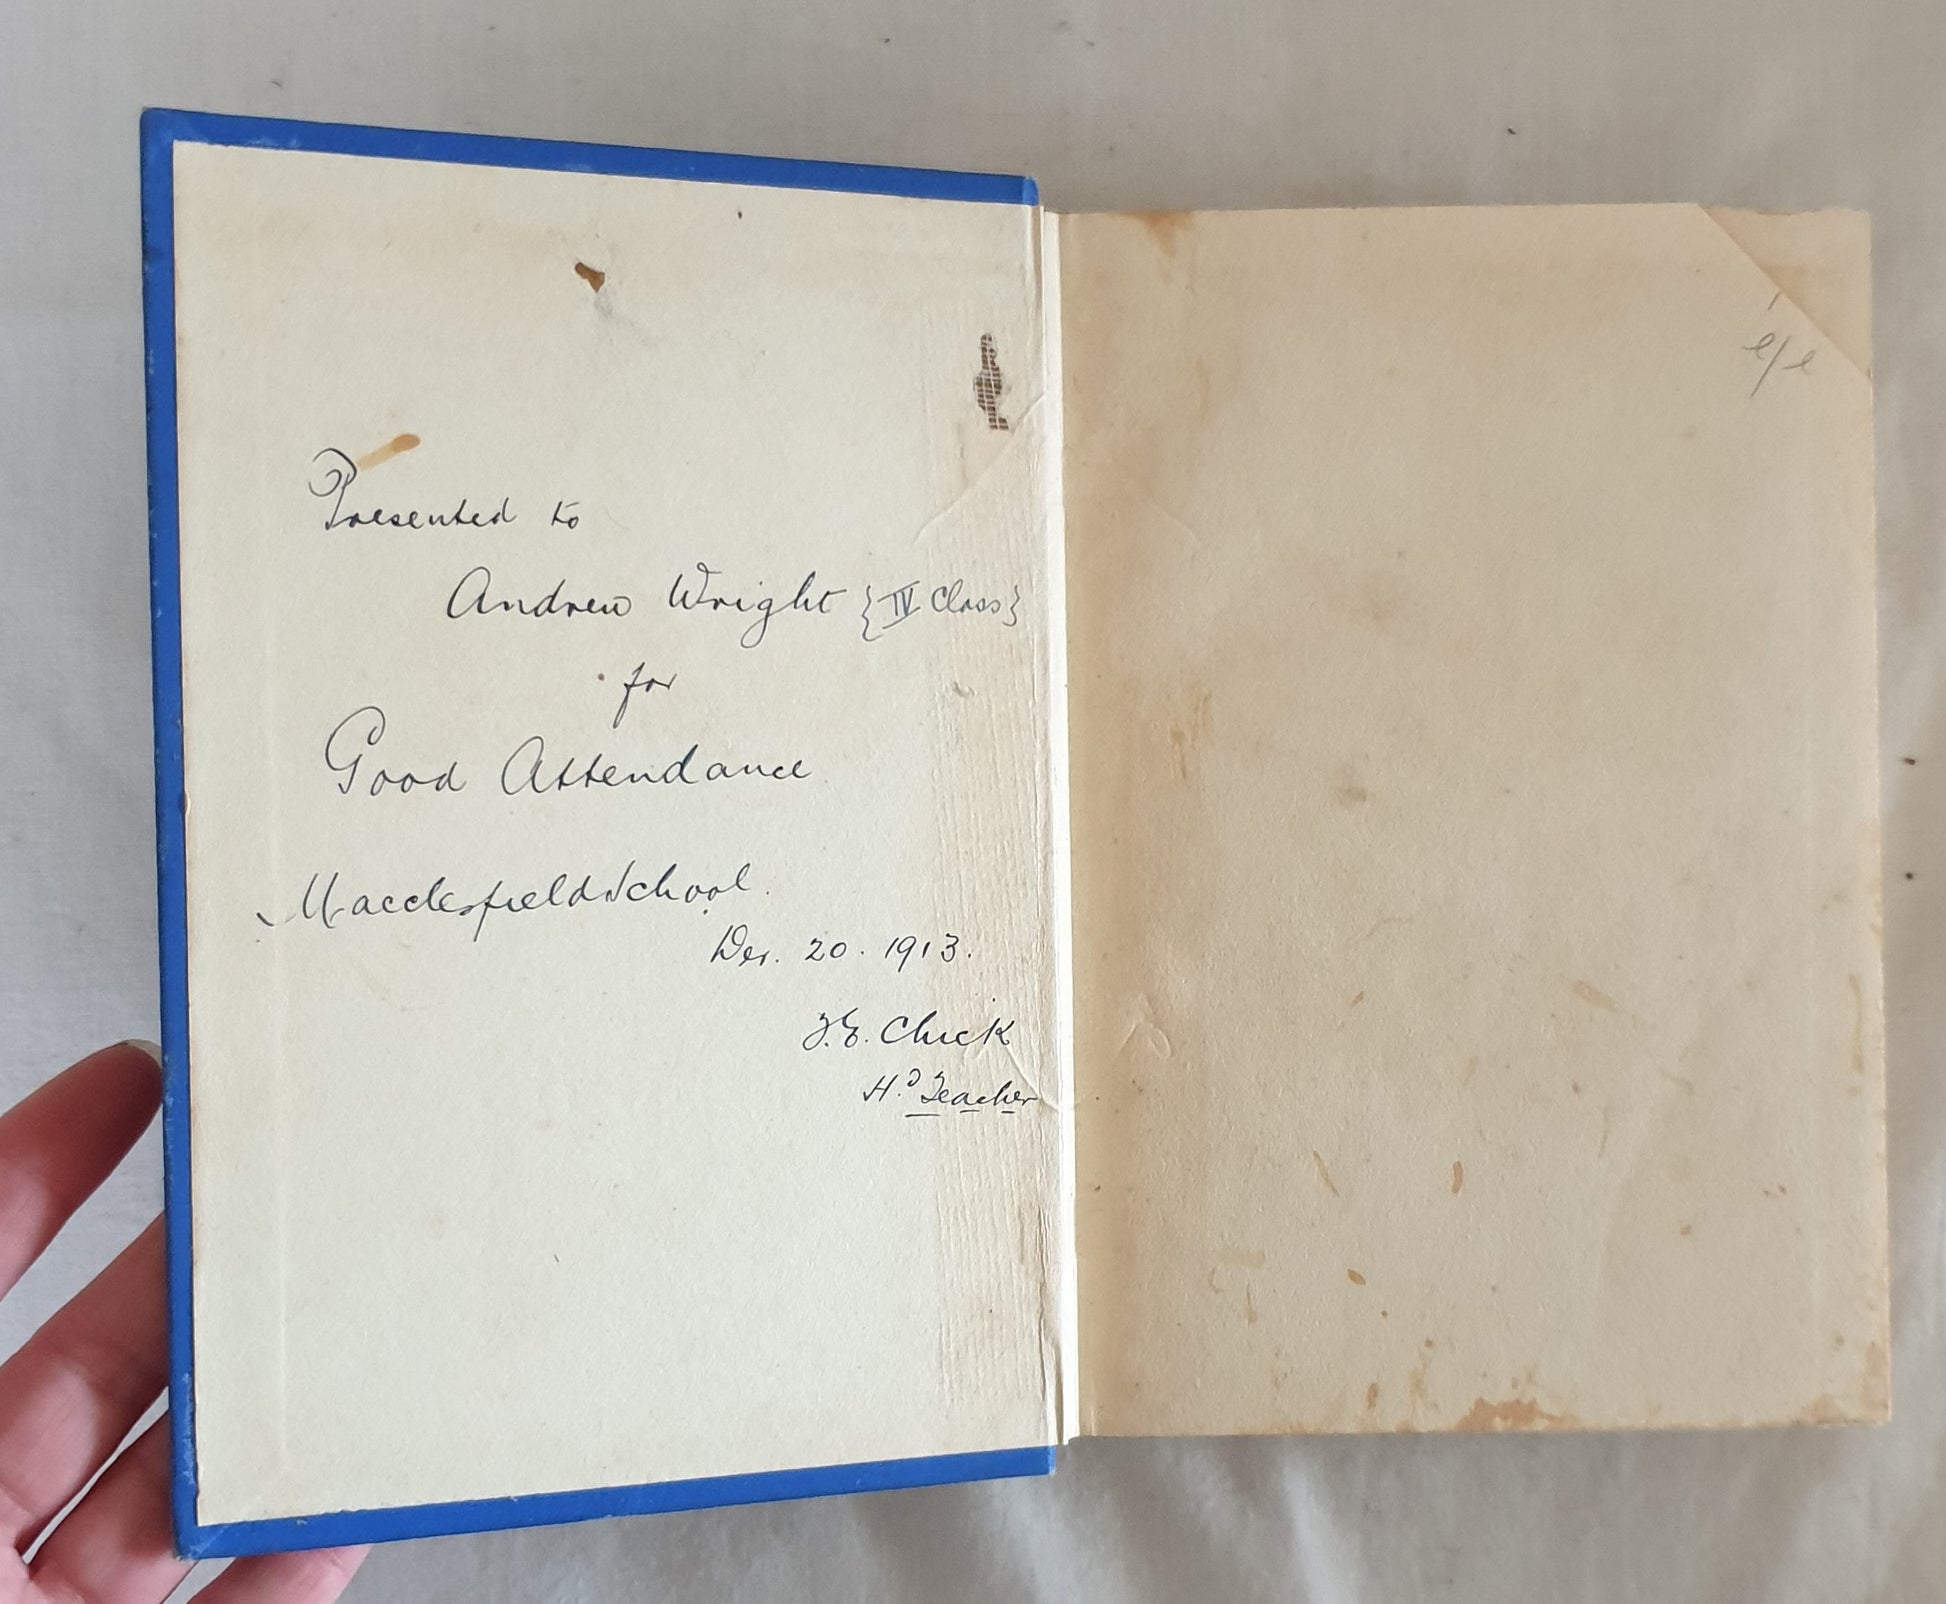 Presented to
Andrew Wright {IV Class}
for
Good Attendance
Macclesfield School.
Dec. 20. 1913.
J. E. Chick
Hd Teacher